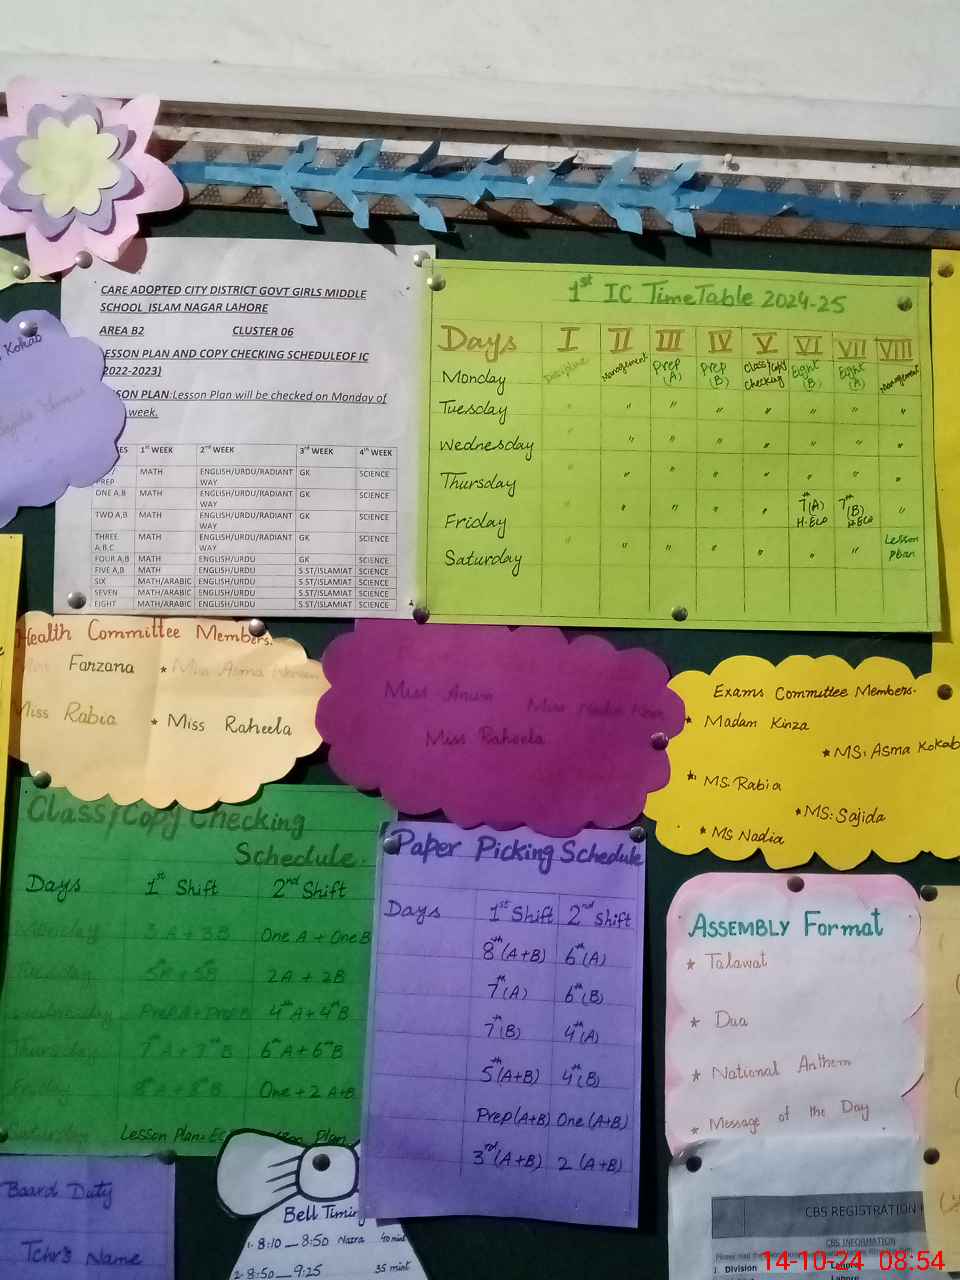 Kokab
CARE ADOPTED CITY DISTRICT GOVT GIRLS MIDDLE
SCHOOL ISLAM NAGAR LAHORE
AREA B2 CLUSTER 06
LESSON PLAN AND COPY CHECKING SCHEDULEOF IC
2022-2023)
SON PLAN:Lesson Plan will be checked on Monday of
week.
ES 1st WEEK 2nd WEEK 3rd WEEK 4th WEEK
PREP MATH ENGLISH/URDU/RADIANT WAY GK SCIENCE
ONE A,B MATH ENGLISH/URDU/RADIANT WAY GK SCIENCE
TWO A,B MATH ENGLISH/URDU/RADIANT WAY GK SCIENCE
THREE A,B,C MATH ENGLISH/URDU/RADIANT WAY GK SCIENCE
FOUR A,B MATH ENGLISH/URDU GK SCIENCE
FIVE A,B MATH ENGLISH/URDU S.ST/ISLAMIAT SCIENCE
SIX MATH/ARABIC ENGLISH/URDU S.ST/ISLAMIAT SCIENCE
SEVEN MATH/ARABIC ENGLISH/URDU S.ST/ISLAMIAT SCIENCE
EIGHT MATH/ARABIC ENGLISH/URDU S.ST/ISLAMIAT SCIENCE
1st IC TimeTable 2024-25
Days I II III IV V VI VII VIII
Monday Discipline Management Prep (A) Prep (B) Class/Copy Checking Eight (B) Eight (A) Management
Tuesday " " " " " " " "
Wednesday " " " " " " " "
Thursday " " " " " " " "
Friday " " " " " 7th (A) H.Eco 7th (B) H.Eco "
Saturday " " " " " " " Lesson plan
Health Committee Members.
Farzana * Miss Asma
Miss Rabia * Miss Raheela
Miss Anum Miss Nadia
Miss Raheela
Exams Committee Members.
* Madam Kinza
* MS: Asma Kokab
* MS. Rabia
* MS: Sajida
* MS Nadia
Class/Copy Checking
Schedule.
Days 1st Shift 2nd Shift
Monday 3A + 3B One A + One B
5A + 5B 2A + 2B
Wednesday Prep A + Prep B 4th A + 4th B
Thursday 7th A + 7th B 6th A + 6th B
8th A + 8th B One + 2 A+B
Lesson Plan Plan
Paper Picking Schedule
Days 1st Shift 2nd shift
8th (A+B) 6th (A)
7th (A) 6th (B)
7th (B) 4th (A)
5th (A+B) 4th (B)
Prep (A+B) One (A+B)
3rd (A+B) 2 (A+B)
ASSEMBLY Format
* Talawat
* Dua
* National Anthem
* Message of the Day
Board Duty
Tchr's Name
Bell Timing
1. 8:10 __ 8:50 Nazra 40 mint
2. 8:50 __ 9:25 35 mint
CBS REGISTRATION
CBS INFORMATION
1. Division Lahore
Lahore
14-10-24 08:54